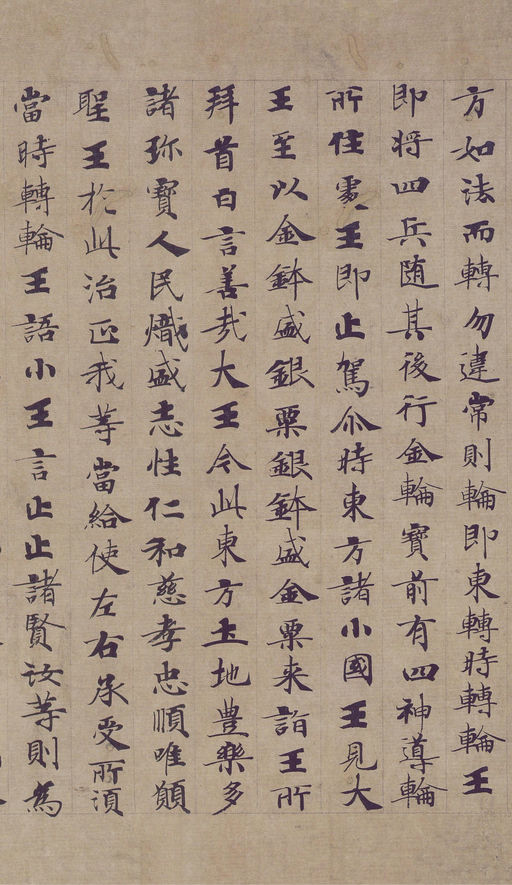 方如法而轉勿違常則輪即東轉時轉輪王
即將四兵随其後行金輪寶前有四神導輪
所住處王即止駕尒時東方諸小國王見大
王至以金鉢盛銀粟銀鉢盛金粟来詣王所
拜首白言善哉大王今此東方土地豊樂多
諸珎寶人民熾盛志性仁和慈孝忠順唯願
聖王於此治正我等當給使左右承受所湏
當時轉輪王語小王言止止諸賢汝等則為